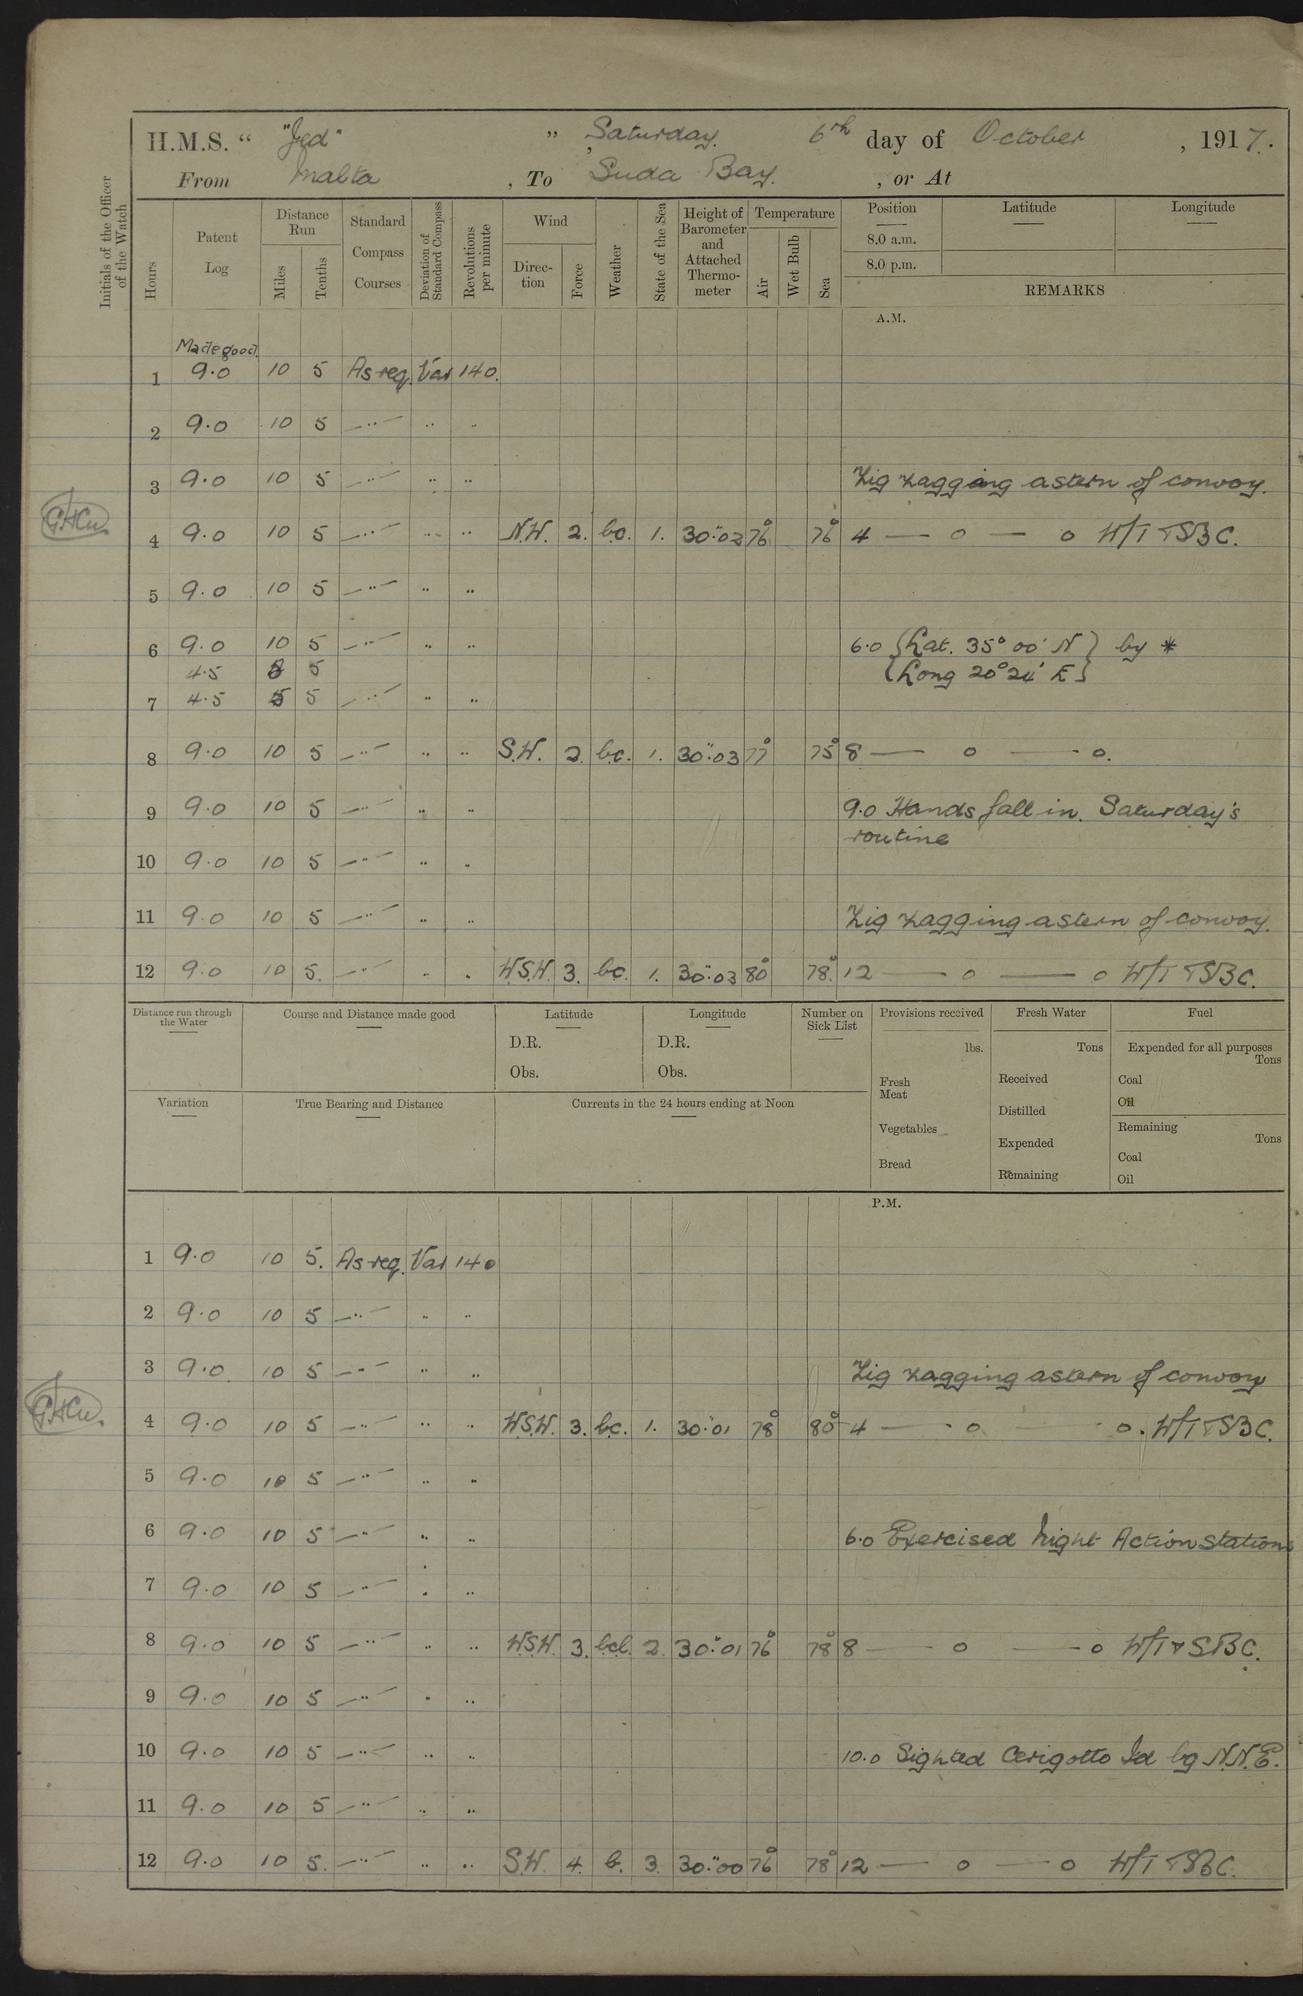 H.M.S. “ "Jed" ” Saturday. 6th day of October , 1917.
From Malta , To Suda Bay. , or At
Initials of the Officer of the Watch
Hours
Patent Log
Distance Run
Miles
Tenths
Standard Compass Courses
Deviation of Standard Compass
Revolutions per minute
Wind
Direction
Force
Weather
State of the Sea
Height of Barometer and Attached Thermometer
Temperature
Air
Wet Bulb
Sea
Position
8.0 a.m.
8.0 p.m.
Latitude
Longitude
REMARKS
A.M.
Made good
1 9.0 10 5 As req. Var 140.
2 9.0 10 5 —..— .. ..
3 9.0 10 5 —..— .. .. Zig zagging astern of convoy.
4 9.0 10 5 —..— .. .. N.W. 2. bc. 1. 30".03 76° 76° 4 — o — o W/T & SBC.
5 9.0 10 5 —..— .. ..
6 9.0 10 5 —..— .. .. 6.0 {Lat. 35° 00' N} by *
4.5 5 {Long 20° 24' E}
7 4.5 5 5 —..— .. ..
8 9.0 10 5 —..— .. .. S.W. 2. bc. 1. 30".03 77° 75° 8 — o — o.
9 9.0 10 5 —..— .. .. 9.0 Hands fall in. Saturday's
routine
10 9.0 10 5 —..— .. ..
11 9.0 10 5 —..— .. .. Zig zagging astern of convoy.
12 9.0 10 5. —..— .. .. W.S.W. 3. bc. 1. 30".03 80° 78° 12 — o — o W/T & SBC.
Distance run through the Water
Course and Distance made good
Latitude
D.R.
Obs.
Longitude
D.R.
Obs.
Number on Sick List
Provisions received
lbs.
Fresh Meat
Vegetables
Bread
Fresh Water
Tons
Received
Distilled
Expended
Remaining
Fuel
Expended for all purposes
Tons
Coal
Oil
Remaining
Tons
Coal
Oil
Variation
True Bearing and Distance
Currents in the 24 hours ending at Noon
P.M.
1 9.0 10 5. As req. Var 140
2 9.0 10 5 —..— .. ..
3 9.0 10 5 —..— .. .. Zig zagging astern of convoy
4 9.0 10 5 —..— .. .. W.S.W. 3. bc. 1. 30".01 78° 80° 4 — o — o. W/T & SBC.
5 9.0 10 5 —..— .. ..
6 9.0 10 5 —..— .. .. 6.0 Exercised Night Action Stations
7 9.0 10 5 —..— .. ..
8 9.0 10 5 —..— .. .. W.S.W. 3. bcl. 2. 30".01 76° 78° 8 — o — o W/T & SBC.
9 9.0 10 5 —..— .. ..
10 9.0 10 5 —..— .. .. 10.0 Sighted Cerigotto Id bg N.N.E.
11 9.0 10 5 —..— .. ..
12 9.0 10 5. —..— .. .. S.W. 4. b. 3. 30".00 76° 78° 12 — o — o W/T & SBC.